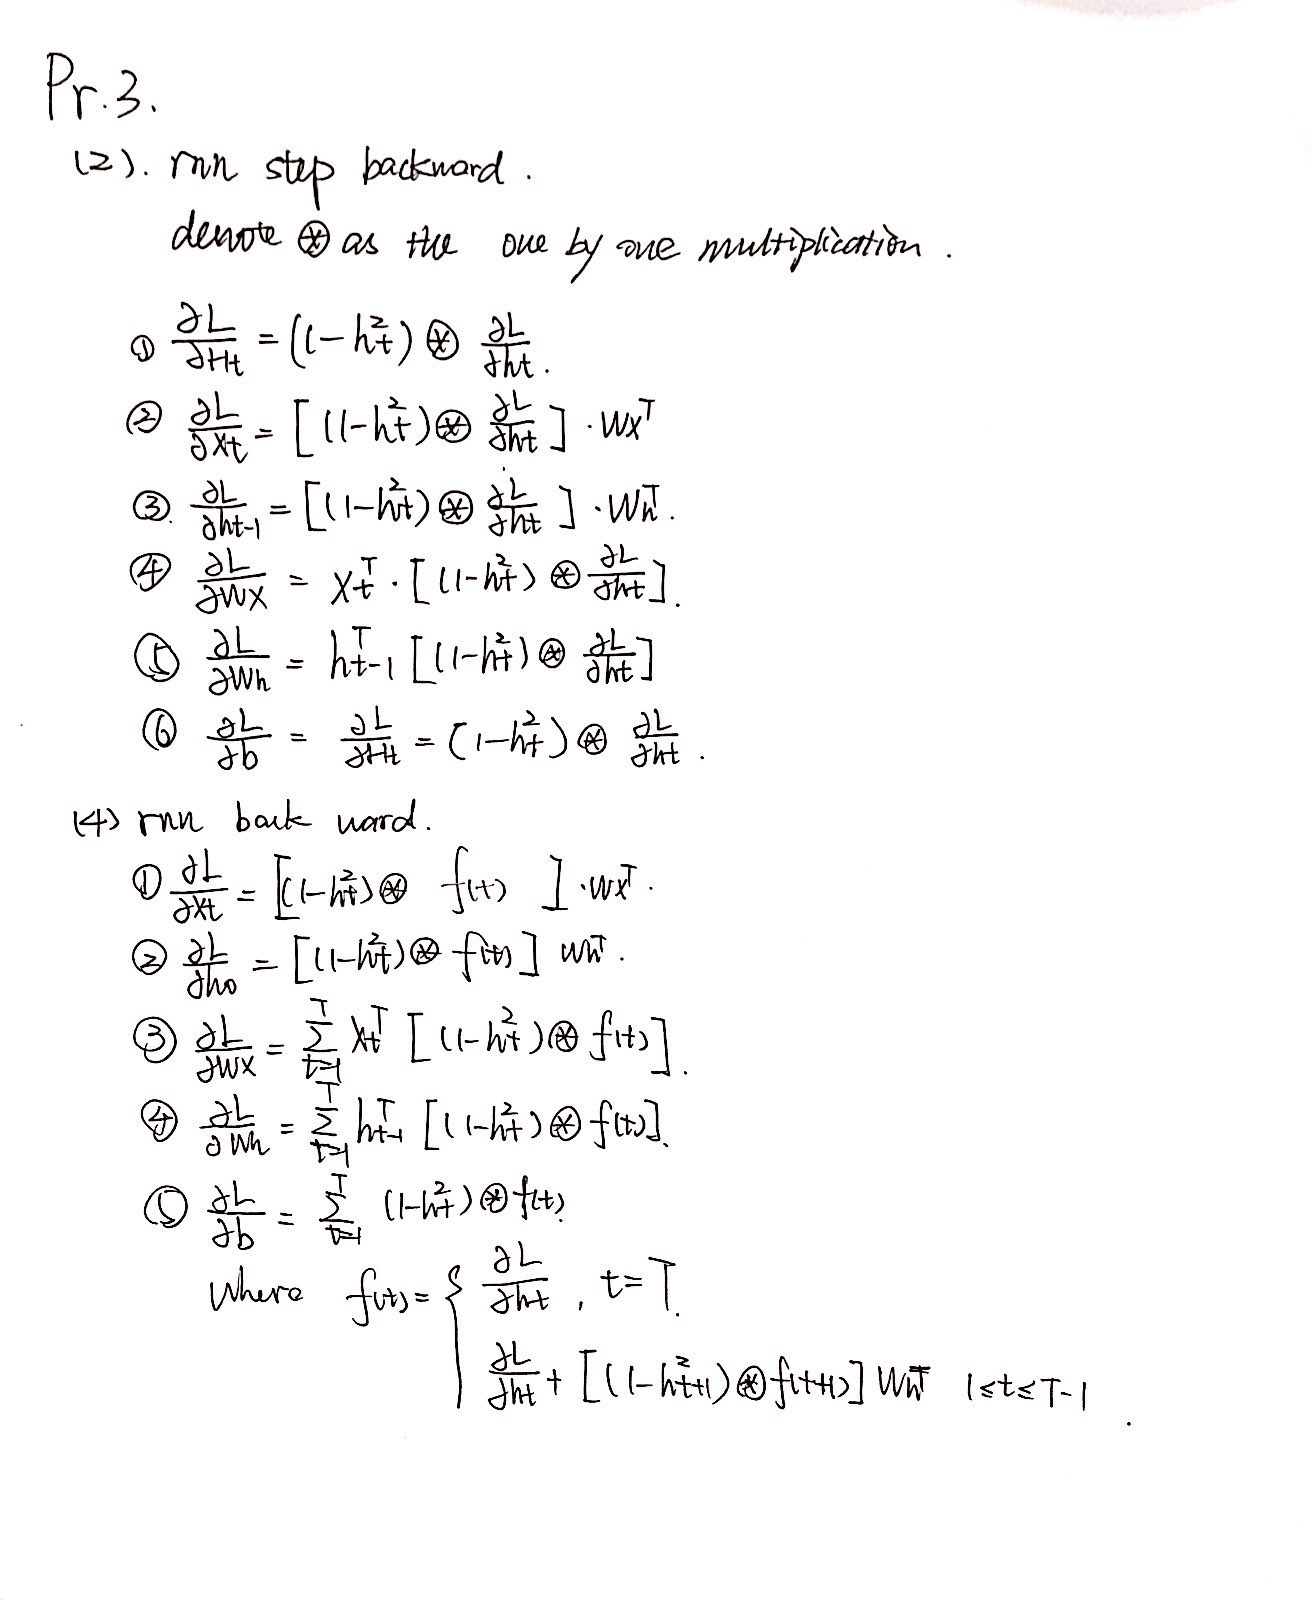 Pr.3.
(2). rnn step backward.
denote ⊛ as the one by one multiplication.
① ∂L/∂Ht = (1-ht²) ⊛ ∂L/∂ht.
② ∂L/∂Xt = [(1-ht²) ⊛ ∂L/∂ht] · Wxᵀ
③. ∂L/∂ht-1 = [(1-ht²) ⊛ ∂L/∂ht] · Whᵀ.
④ ∂L/∂Wx = Xtᵀ · [(1-ht²) ⊛ ∂L/∂ht].
⑤ ∂L/∂Wh = ht-1ᵀ [(1-ht²) ⊛ ∂L/∂ht]
⑥ ∂L/∂b = ∂L/∂Ht = (1-ht²) ⊛ ∂L/∂ht.
(4) rnn back ward.
① ∂L/∂Xt = [(1-ht²) ⊛ f(t)] · Wxᵀ.
② ∂L/∂ho = [(1-ht²) ⊛ f(t)] Whᵀ.
③ ∂L/∂Wx = Σ_{t=1}^{T} Xtᵀ [(1-ht²) ⊛ f(t)].
④ ∂L/∂Wh = Σ_{t=1}^{T} ht-1ᵀ [(1-ht²) ⊛ f(t)].
⑤ ∂L/∂b = Σ_{t=1}^{T} (1-ht²) ⊛ f(t).
Where f(t) = { ∂L/∂ht, t=T.
∂L/∂ht + [(1-ht+1²) ⊛ f(t+1)] Whᵀ 1≤t≤T-1.